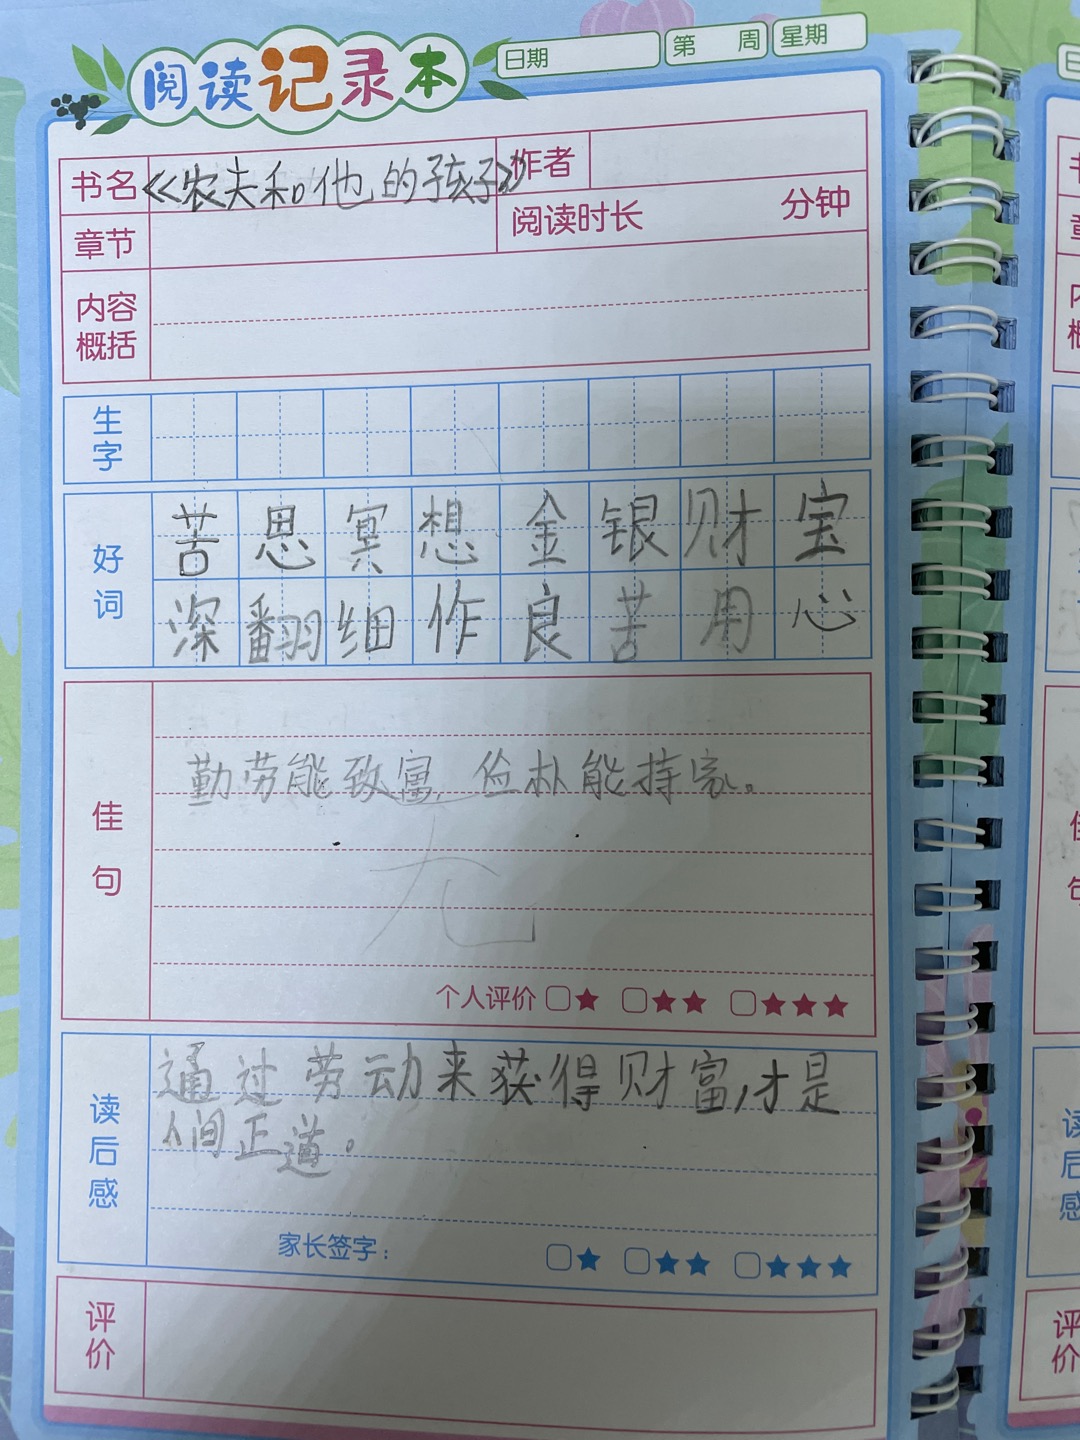 阅读记录本 日期 第 周 星期
书名 《农夫和他的孩子》 作者
章节 阅读时长 分钟
内容
概括
生字
好词 苦思冥想金银财宝
深翻细作良苦用心
佳句
勤劳能致富,俭朴能持家。
九
个人评价 □★ □★★ □★★★
读后感 通过劳动来获得财富,才是
人间正道。
家长签字: □★ □★★ □★★★
评价